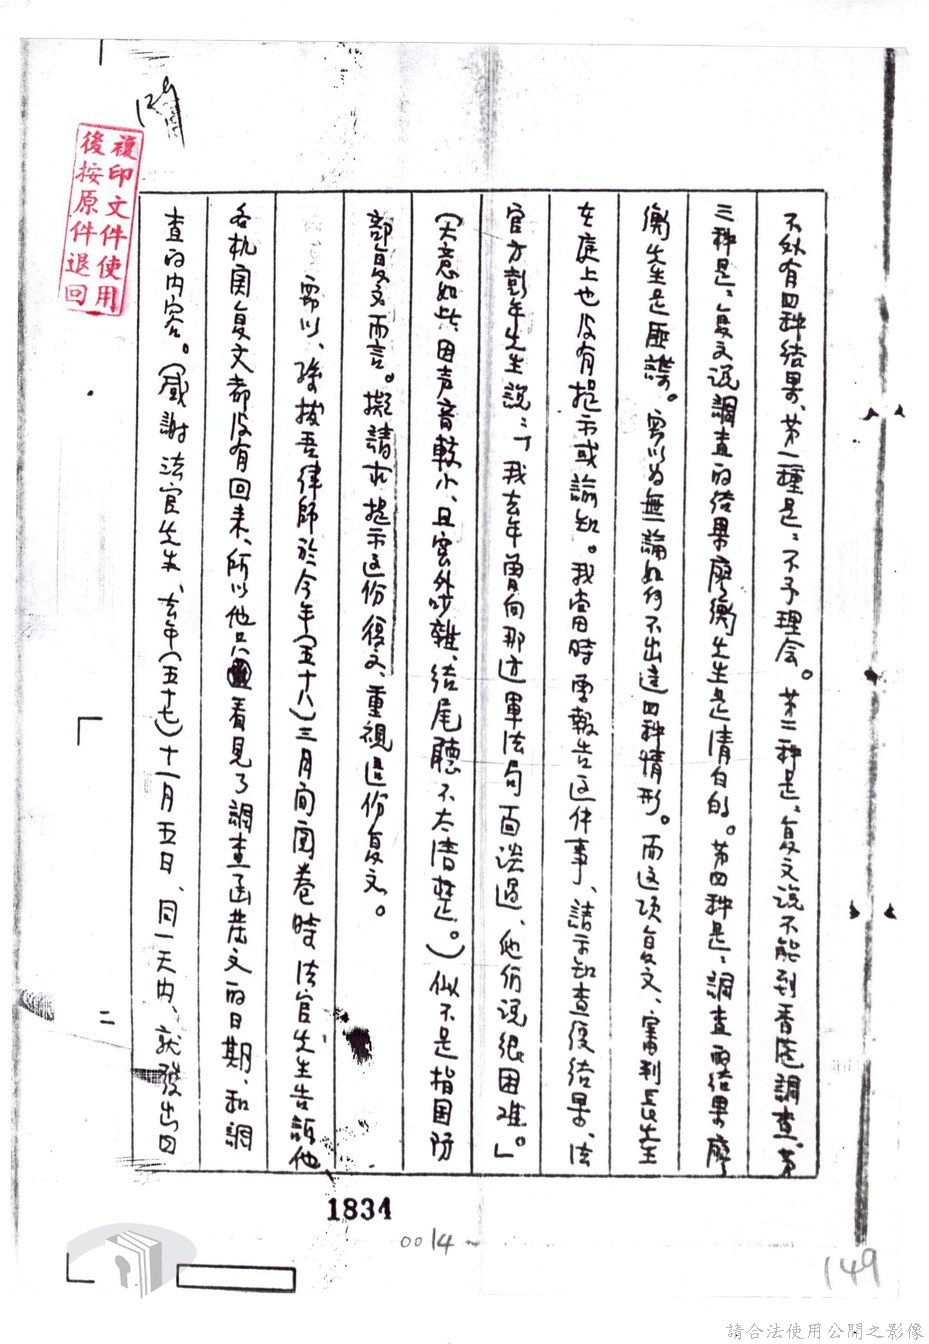 不外有四種结果、第一種是：不予理会。第二种是、复文说不能到香港調查、第
三种是：复文说調查的结果廖衡先生是清白的。第四种是：調查的结果廖
衡先生是匪諜。所以为無論如何不出這四种情形。而这项复文、審判長先生
在庭上也没有提示或諭知。我當時要報告这件事、請示知查復结果、法
官方彭年先生説：「我去年曾向那边軍法局面谈過、他们说很困难。」
(大意如此因声音較小、且窗外吵雜、结尾聽不太清楚。)似不是指国防
部复文而言。擬請求提示这份復文、重視這份复文。
所以、孫拔吾律師於今年(五十八)三月间閱卷時、法官先生告訴他
各机関复文都没有回来、所以他只看見了調查函發文的日期、和調
查的内容。(感謝法官先生、去年(五十七)十一月五日、同一天内、就發出四
複印文件使用
後按原件退回
129
二
1834
0014
149
請合法使用公開之影像